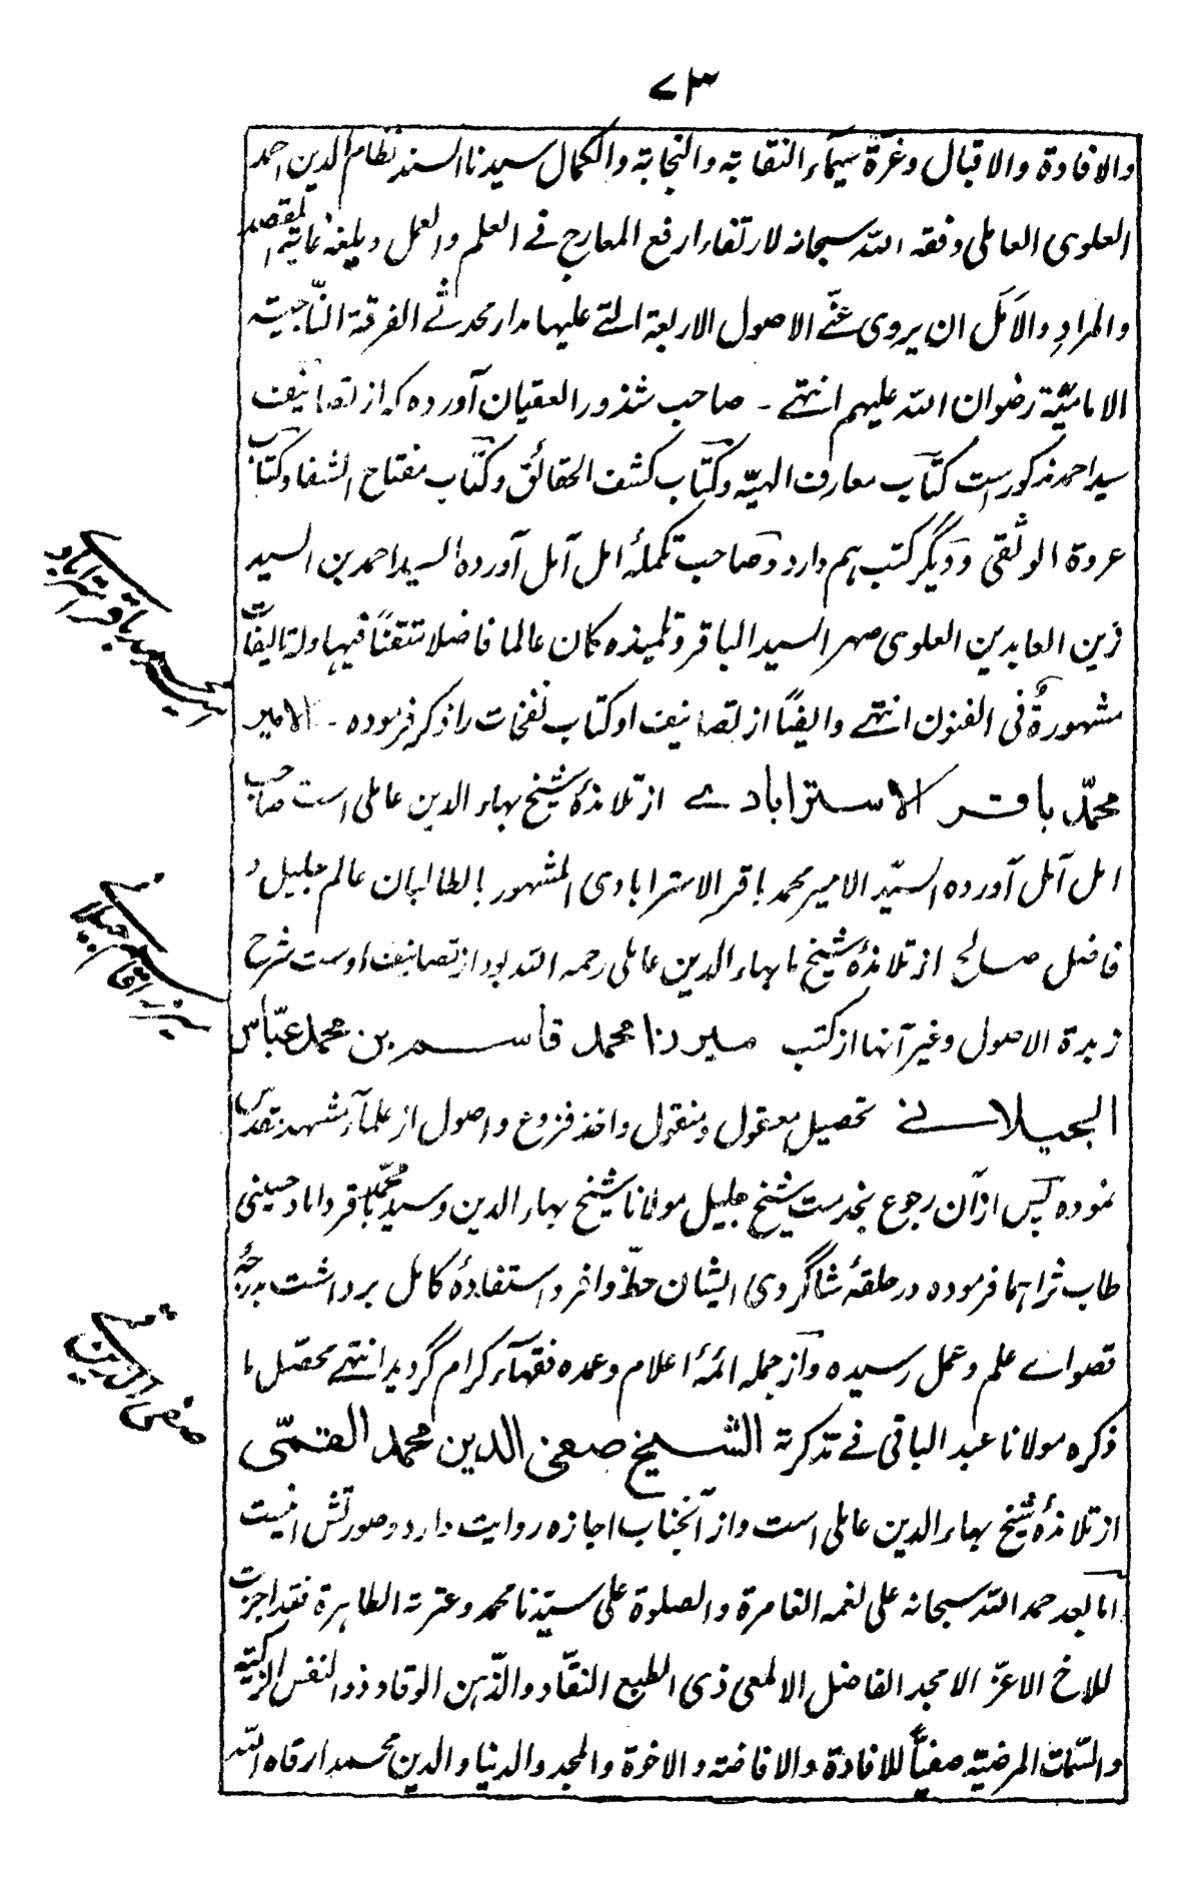 ۷۳
والافادة والاقبال وغرّة سیماء النقابة والنجابة والکمال سیدنا السند نظام الدین احمد
العلوی العاملی وفقه الله سبحانه لارتفاء ارفع المعارج فے العلم والعمل وبلغه غایة المقصد
والمراد والاَمَل ان یروی عنّے الاصول الاربعة التے علیها مدار محدثے الفرقة النّاجیة
الامامیّة رضوان الله علیهم انتهے ۔ صاحب شذور العقیان آورده که از تصانیف
سید احمد مذکور است کتاب معارف الهیّه وکتاب کشف الحقائق وکتاب مفتاح الشفا وکتاب
عروة الوثقی ودیگر کتب هم دارد وصاحب تکملۂ امل آمل آورده السید احمد بن السید
زین العابدین العلوی صهر السید الباقر وتلمیذه کان عالما فاضلا متقنًا فیها وله تالیفات
مشهورةٌ فی الفنون انتهے وایضًا از تصانیف او کتاب نفخات را ذکر فرموده ۔ الامیر
محمّد باقر الاسترابادے از تلامذۂ شیخ بهاء الدین عاملی است صاحب
امل آمل آورده السیّد الامیر محمد باقر الاسترابادی المشهور بالطالبان عالم جلیل و
فاضل صالح از تلامذۂ شیخ ما بهاء الدین عاملی رحمه الله بود از تصانیف اوست شرح
زبدة الاصول وغیر آنها از کتب میرزا محمد قاسم بن محمد عبّاس
الجیلانے تحصیل معقول ومنقول واخذ فروع واصول از علمآء مشهد مقدس
نموده پس از آن رجوع بخدمت شیخ جلیل مولانا شیخ بهاء الدین وسید محمّد باقر داماد حسینی
طاب ثراهما فرموده در حلقۂ شاگردی ایشان حظّ وافر واستفادۂ کامل برداشت بدرجۂ
قصواے علم وعمل رسیده واز جمله ائمۂ اعلام وعمده فقهآء کرام گردید انتهے محصّل ما
ذکره مولانا عبد الباقی فے تذکرته الشیخ صفی الدین محمد القمّی
از تلامذۂ شیخ بهاء الدین عاملی است واز آنجناب اجازه روایت دارد وصورتش اینست
اما بعد حمد الله سبحانه علی نعمه الغامرة والصلوة علی سیّدنا محمد وعترته الطاهرة فقد اجزت
للاخ الاعزّ الامجد الفاضل الالمعی ذی الطبع النقّاد والذّهن الوقاد ذو النفس الزکیّة
والسّمات المرضیّة صفیّاً للافادة والافاضة والاخوة والمجد والدنیا والدین محمد ارقاه الله
امیر محمد باقر استرابادے
میرزا قاسم جیلانے
صفی الدین قمے